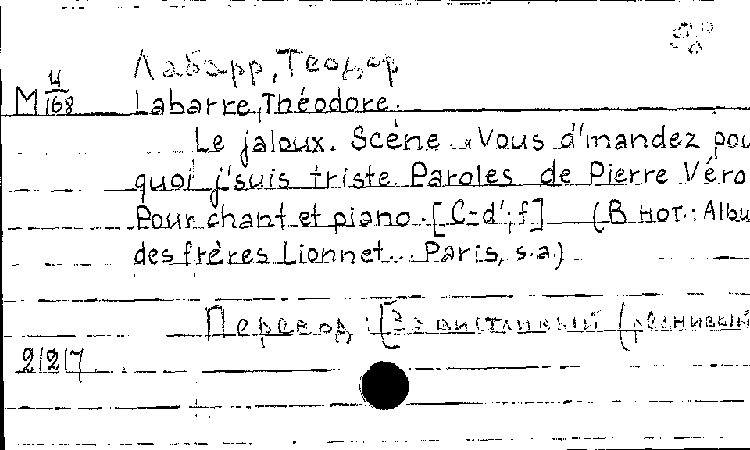 Лабарр, Теодор
М 4/168 Labarre, Théodore.
Le jaloux. Scène. „Vous d'mandez pou
quoi j'suis triste Paroles de Pierre Véro
Pour chant et piano. [C-d'; f] (В нот.: Albu
des frères Lionnet... Paris, s.a.)
Перевод: [Завистливый (ревнивый
2/2/7